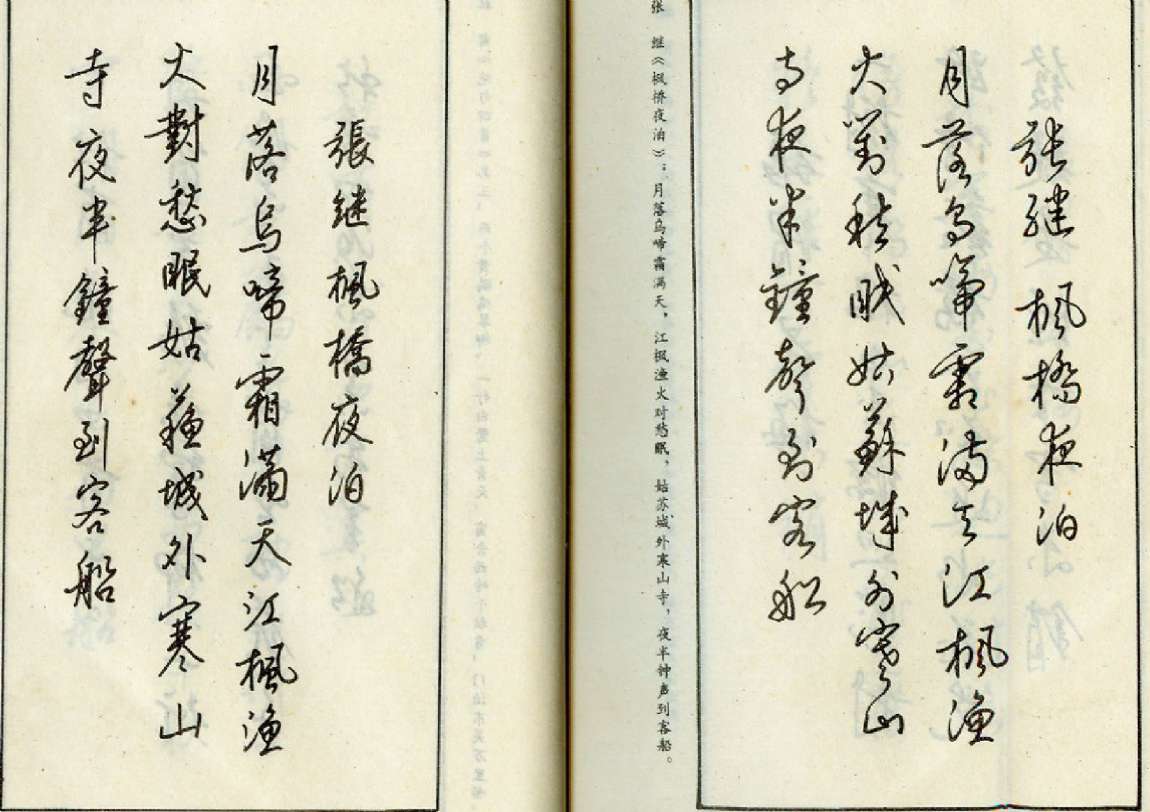 張継 楓橋夜泊
月落烏啼霜满天江枫渔
火對愁眠姑蘇城外寒山
寺夜半鐘聲到客船
张 继《枫桥夜泊》：月落乌啼霜满天，江枫渔火对愁眠，姑苏城外寒山寺，夜半钟声到客船。
張継楓橋夜泊
月落烏啼霜滿天江楓漁
火對愁眠姑蘇城外寒山
寺夜半鐘聲到客船